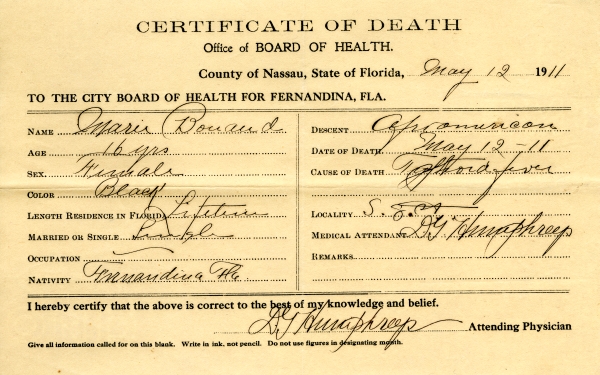 CERTIFICATE OF DEATH
Office of BOARD OF HEALTH.
County of Nassau, State of Florida, May 12 1911
TO THE CITY BOARD OF HEALTH FOR FERNANDINA, FLA.
NAME Marie
AGE 16 yrs
SEX Female
COLOR Black
LENGTH RESIDENCE IN FLORIDA Lifetime
MARRIED OR SINGLE Single
OCCUPATION
NATIVITY Fernandina Fla
DESCENT Afroamerican
DATE OF DEATH May 12-11
CAUSE OF DEATH fever
LOCALITY S.
MEDICAL ATTENDANT DG Humphreys
REMARKS
I hereby certify that the above is correct to the best of my knowledge and belief.
DG Humphreys Attending Physician
Give all information called for on this blank. Write in ink, not pencil. Do not use figures in designating month.